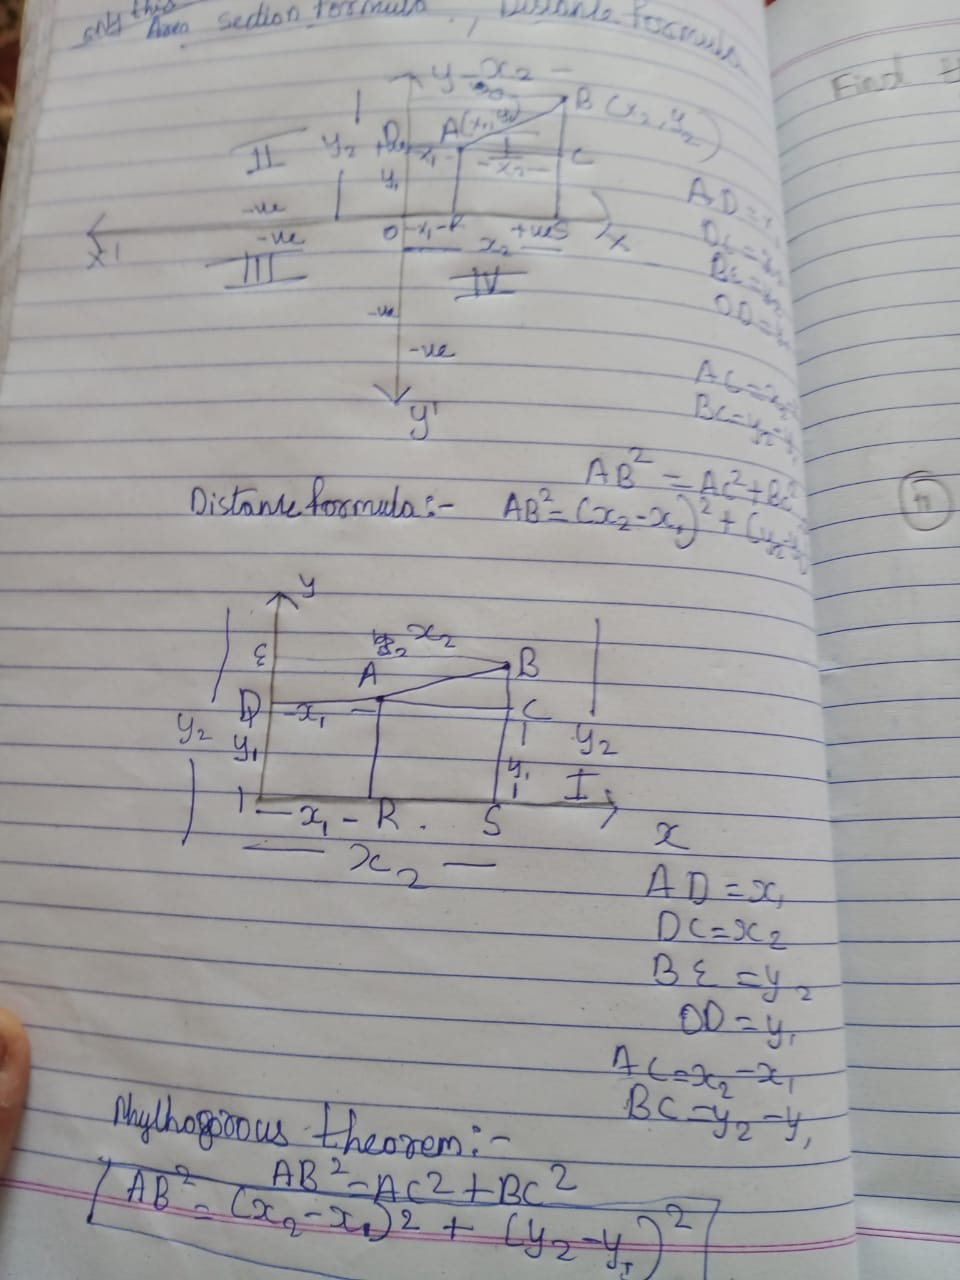 only this
Area section formula, Distance formula
Find
y - x2 -
B (x2, y2)
A(x1, y1)
II
y2
D
- x1 -
- x2 -
C
y1
-ve
O
- x1 - R
+ve S
x
x'
-ve
x2
III
IV
-ve
-ve
y'
AD =
DC =
BC =
OD =
AC = x2
BC = y2 - y1
AB2 = AC2 + BC2
Distance formula :- AB2 = (x2 - x1)2 + (y2 - y1)
y
ε
x2
A
B
D
- x1 -
C
y2
y1
y2
y1
I
- x1 - R . S
x
x2
AD = x1
DC = x2
Bε = y2
OD = y1
AC = x2 - x1
BC = y2 - y1
Phythogorous theorem :-
AB2 = AC2 + BC2
AB2 = (x2 - x1)2 + (y2 - y1)2